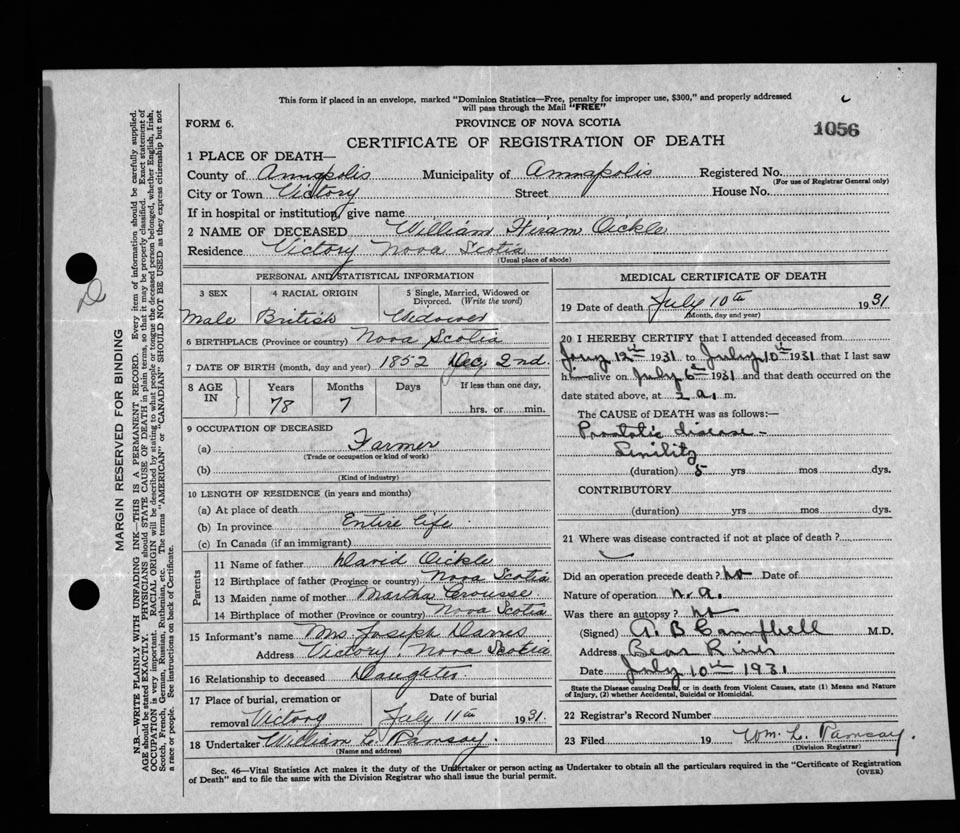 This form if placed in an envelope, marked "Dominion Statistics—Free, penalty for improper use, $300," and properly addressed
will pass through the Mail "FREE"
FORM 6.
PROVINCE OF NOVA SCOTIA
1056
CERTIFICATE OF REGISTRATION OF DEATH
1 PLACE OF DEATH—
County of Annapolis Municipality of Annapolis Registered No.
(For use of Registrar General only)
City or Town Victory Street House No.
If in hospital or institution, give name
2 NAME OF DECEASED William Hiram Oickle
Residence Victory Nova Scotia
(Usual place of abode)
PERSONAL AND STATISTICAL INFORMATION
3 SEX 4 RACIAL ORIGIN 5 Single, Married, Widowed or Divorced. (Write the word)
Male British Widower
6 BIRTHPLACE (Province or country) Nova Scotia
7 DATE OF BIRTH (month, day and year) 1852 Dec, 2nd.
8 AGE IN Years Months Days If less than one day,
78 7 hrs. or min.
9 OCCUPATION OF DECEASED
(a) Farmer
(Trade or occupation or kind of work)
(b)
(Kind of industry)
10 LENGTH OF RESIDENCE (in years and months)
(a) At place of death
(b) In province Entire life
(c) In Canada (if an immigrant)
Parents
11 Name of father David Oickle
12 Birthplace of father (Province or country) Nova Scotia
13 Maiden name of mother Martha Crousse
14 Birthplace of mother (Province or country) Nova Scotia
15 Informant's name Mrs. Joseph
Address Victory, Nova Scotia
16 Relationship to deceased Daugater.
17 Place of burial, cremation or removal Victory
Date of burial July 11th 1931.
18 Undertaker William L. Ramsay.
(Name and address)
MEDICAL CERTIFICATE OF DEATH
19 Date of death July 10th 1931
(Month, day and year)
20 I HEREBY CERTIFY that I attended deceased from
12th 1931 to July 10th 1931 that I last saw
h alive on July 6th 1931 and that death occurred on the
date stated above, at 2 a. m.
The CAUSE OF DEATH was as follows:—
Prostatic disease -
Senility
(duration) 5 yrs mos dys.
CONTRIBUTORY
(duration) yrs mos dys.
21 Where was disease contracted if not at place of death?
Did an operation precede death? No Date of
Nature of operation n.a.
Was there an autopsy? no
(Signed) A. B Campbell M.D.
Address Bear River
Date July 10th 1931
State the Disease causing Death, or in death from Violent Causes, state (1) Means and Nature
of Injury, (2) whether Accidental, Suicidal or Homicidal.
22 Registrar's Record Number
23 Filed 19 Wm. L. Ramsay.
(Division Registrar)
Sec. 46—Vital Statistics Act makes it the duty of the Undertaker or person acting as Undertaker to obtain all the particulars required in the "Certificate of Registration
of Death" and to file the same with the Division Registrar who shall issue the burial permit.
(OVER)
MARGIN RESERVED FOR BINDING
N.B.—WRITE PLAINLY WITH UNFADING INK—THIS IS A PERMANENT RECORD. Every item of information should be carefully supplied.
AGE should be stated EXACTLY. PHYSICIANS should STATE CAUSE OF DEATH in plain terms, so that it may be properly classified. Exact statement of
OCCUPATION is very important. RACIAL ORIGIN will be described by stating to what people or tongue the deceased person belonged, whether English, Irish,
Scotch, French, German, Russian, Ruthenian, etc. The terms "AMERICAN" or "CANADIAN" SHOULD NOT BE USED as they express citizenship but not
a race or people. See instructions on back of Certificate.